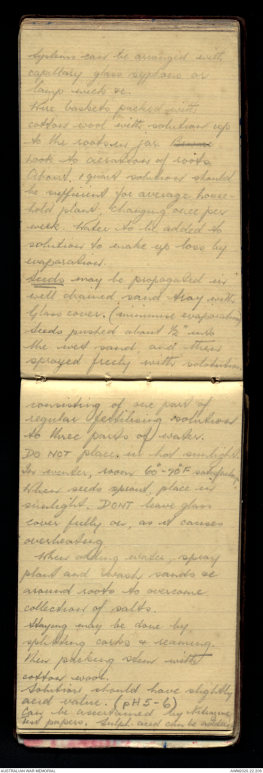 Systems can be arranged with
capillary glass syphons or
lamp wicks &c.
Wire baskets packed with
cotton wool with solution up
to the roots in jar.
Look to aeration of roots
About 1 quart solution should
be sufficient for average house-
hold plant, changing once per
week. Water to be added to
solution to make up loss by
evaporation.
Seeds may be propagated in
well drained sand tray with
Glass cover. (minimise evaporation)
Seeds pushed about ½" into
the wet sand, and then
sprayed freely with solution
consisting of one part of
regular fertilising solution
to three parts of water.
DO NOT place in hot sunlight.
In winter, room 60°-70°F satisfactory
When seeds sprout, place in
sunlight. DONT leave glass
cover fully on, as it causes
overheating
When adding water, spray
plant and wash sands &c
around roots to overcome
collection of salts.
Staying may be done by
splitting corks & reaming.
Then packing stem with
cotton wool.
Solution should have slightly
acid value. (pH 5-6)
Can be ascertained by Nitrazine
test papers. Sulph. acid can be added
AUSTRALIAN WAR MEMORIAL